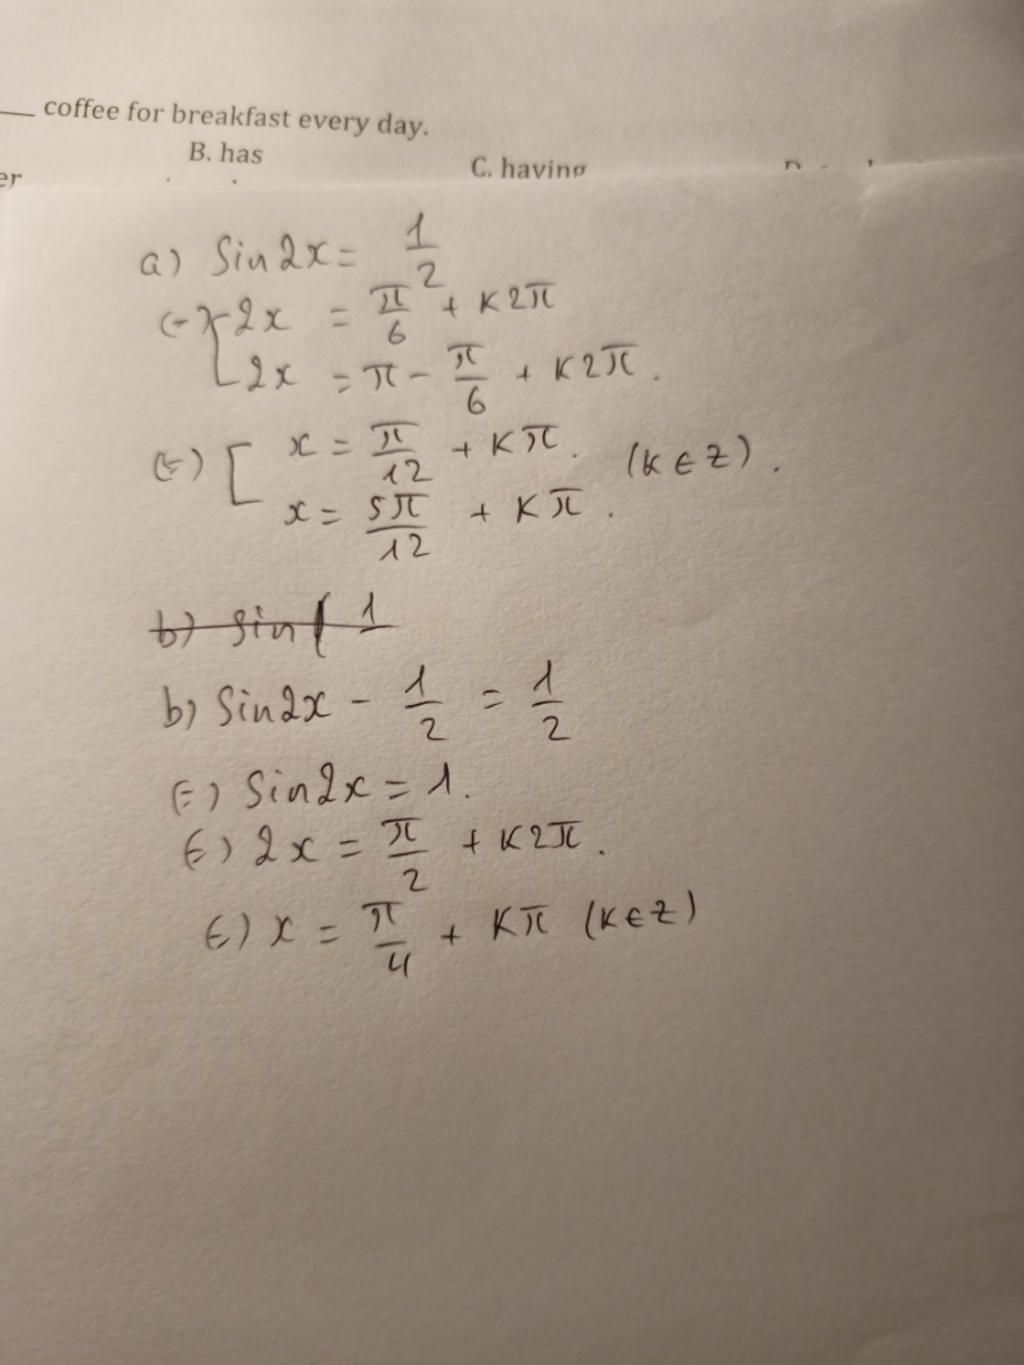 coffee for breakfast every day.
B. has C. having
er
a) Sin2x = 1/2
<=> [2x = π/6 + k2π
2x = π - π/6 + k2π.
<=> [x = π/12 + kπ. (k∈Z).
x = 5π/12 + kπ.
b) sin( 1
b) Sin2x - 1/2 = 1/2
<=> Sin2x = 1.
<=> 2x = π/2 + k2π.
<=> x = π/4 + kπ (k∈Z)